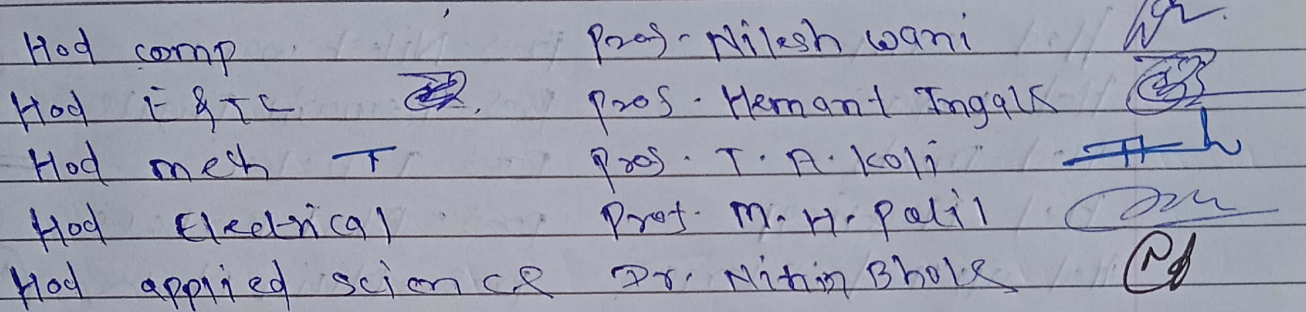 Hod comp Prof. Nilesh wani
Hod E & TC Prof. Hemant Ingale
Hod mech T Prof. T. A. Koli
Hod Electrical Prof. M. H. Patil
Hod applied science Dr. Nitin Bhole